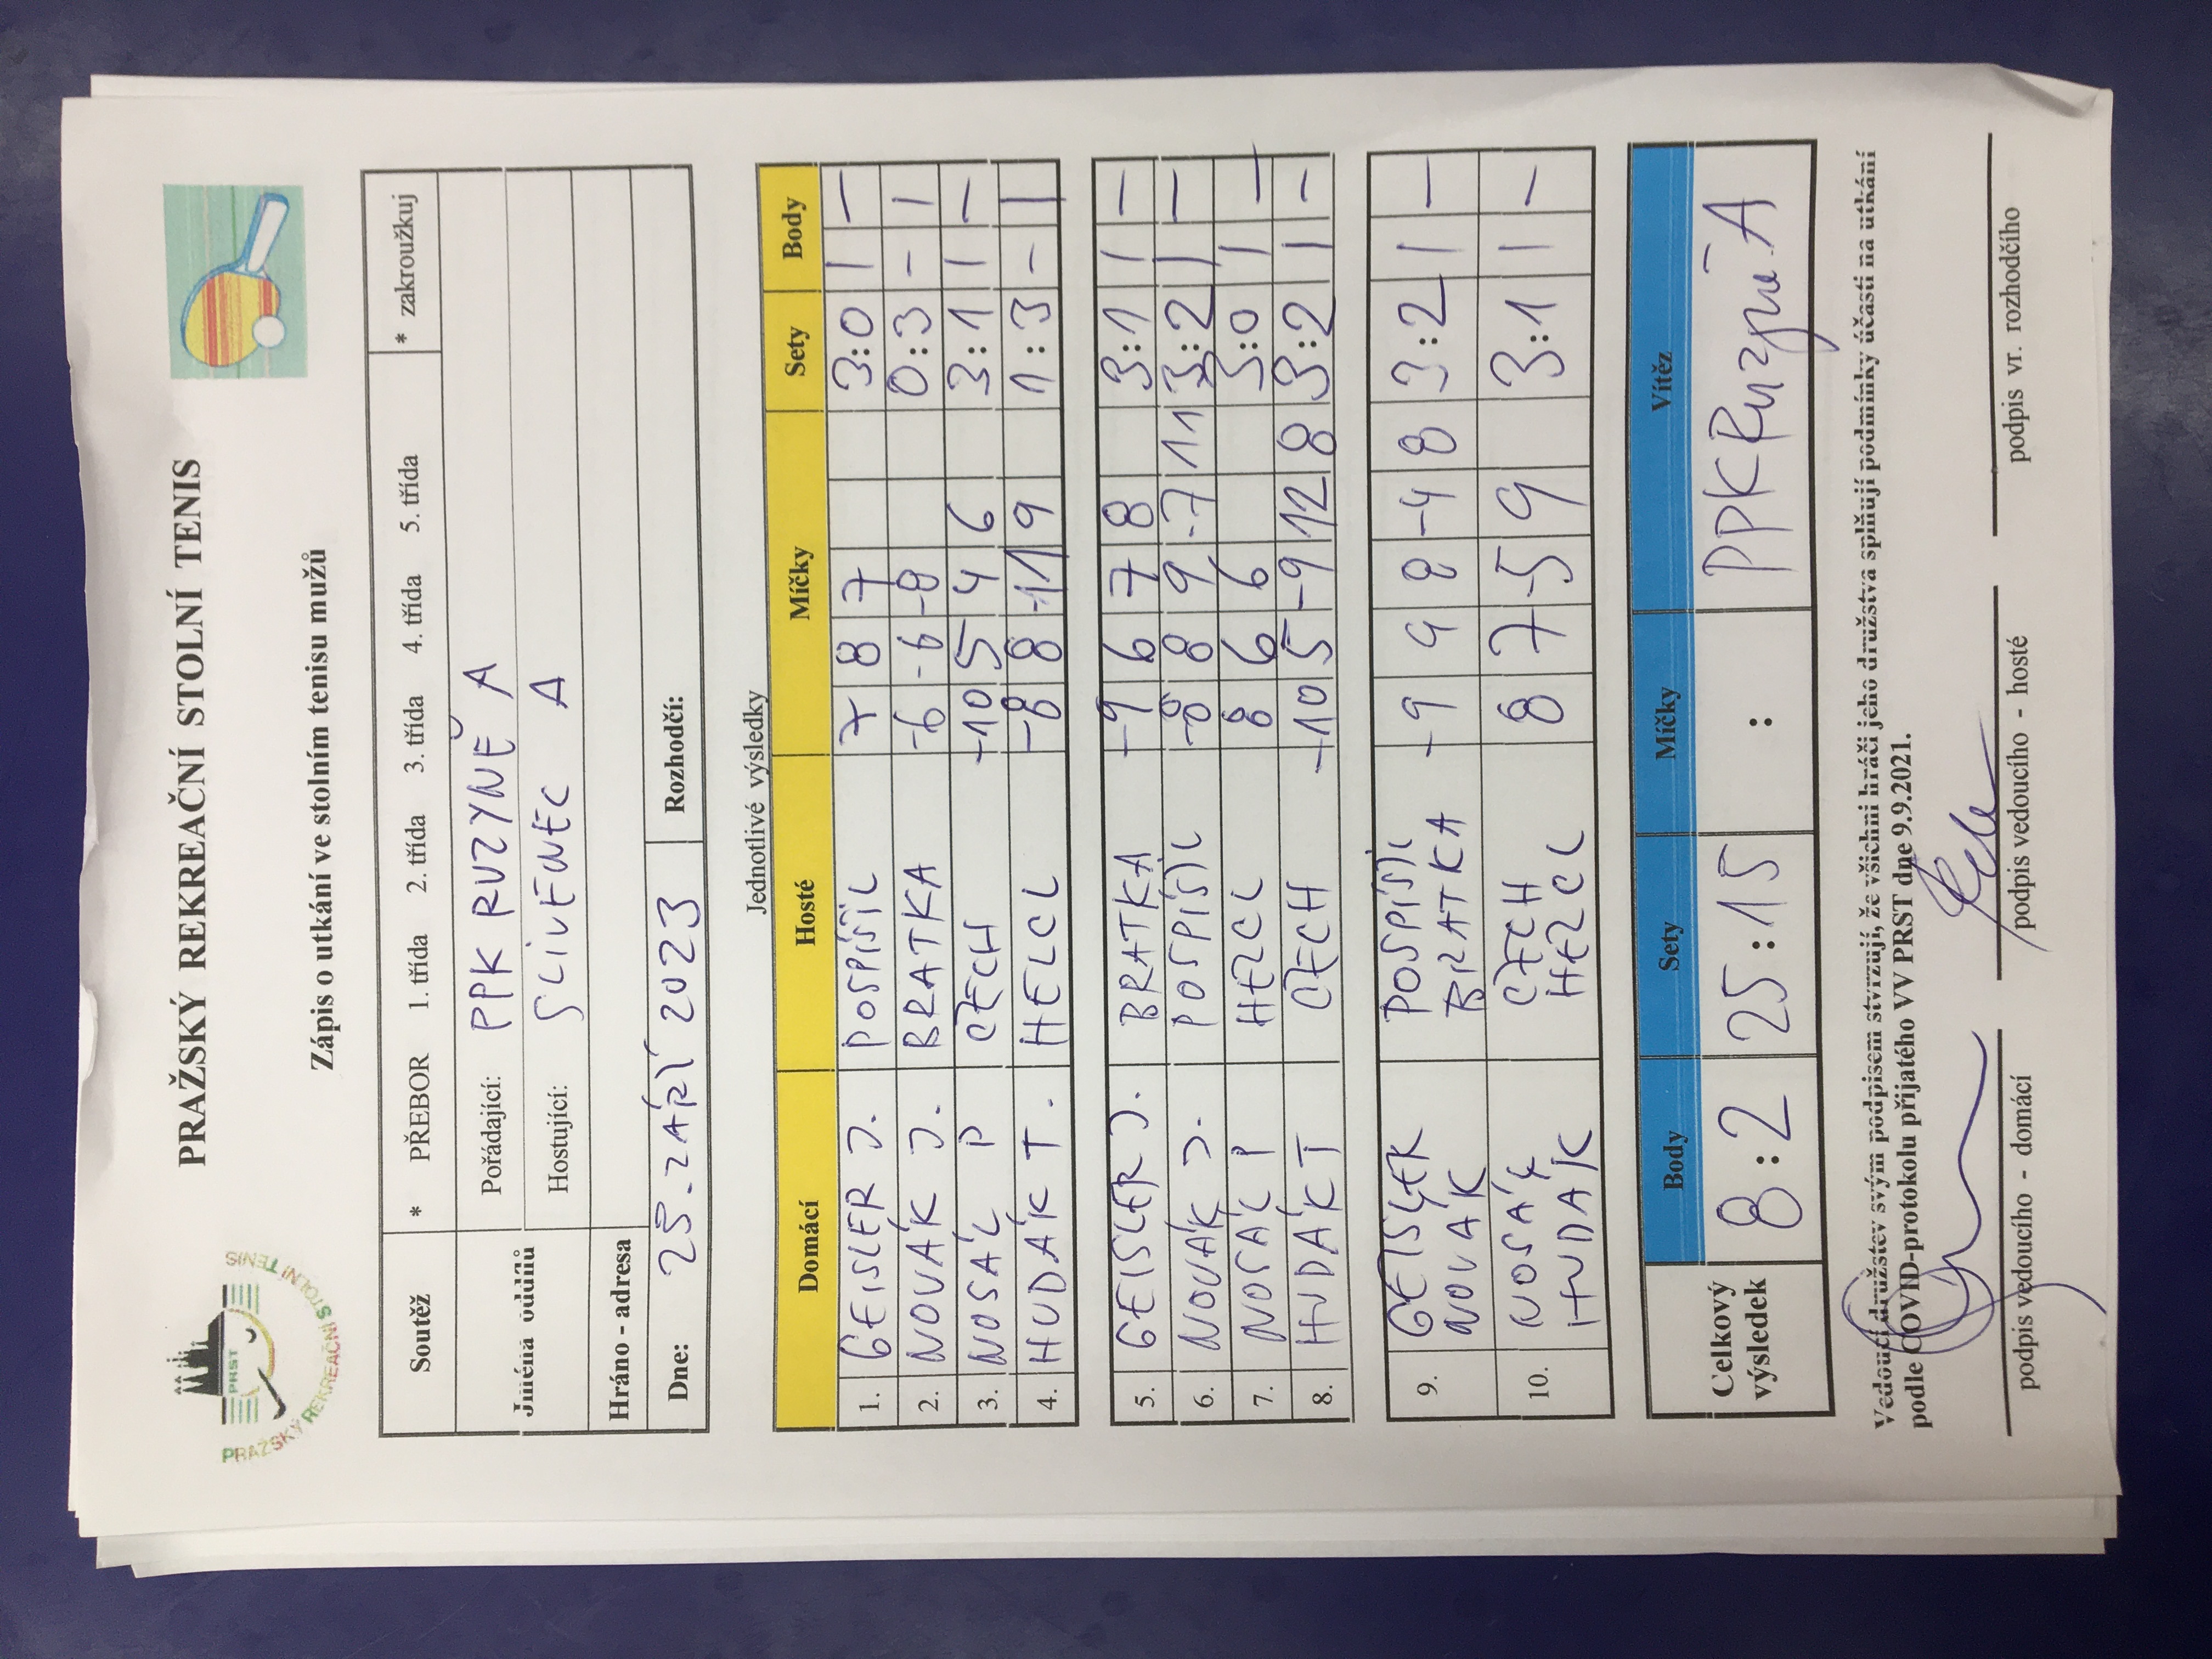 PRAŽSKÝ REKREAČNÍ STOLNÍ TENIS
PRST
PRAŽSKÝ REKREAČNÍ STOLNÍ TENIS
Zápis o utkání ve stolním tenisu mužů
Soutěž * PŘEBOR 1. třída 2. třída 3. třída 4. třída 5. třída * zakroužkuj
Jména oddílů Pořádající: PPK RUZYNĚ A
Hostující: SLIVENEC A
Hráno - adresa
Dne: 25. ZÁŘÍ 2023 Rozhodčí:
Jednotlivé výsledky
Domácí Hosté Míčky Sety Body
1. GEISLER J. POSPÍŠIL 7 8 7 3:0 1 -
2. NOVÁK J. BRATKA -6 -6 -8 0:3 - 1
3. NOSÁL P ČECH -10 5 4 6 3:1 1 -
4. HUDÁK T. HELCL -8 8 -11 9 1:3 - 1
5. GEISLER J. BRATKA -9 6 7 8 3:1 1 -
6. NOVÁK J. POSPÍŠIL -8 8 9 -7 11 3:2 1 -
7. NOSÁL P HELCL 8 6 6 3:0 1 -
8. HUDÁK T ČECH -10 5 -9 12 8 3:2 1 -
9. GEISLER POSPÍŠIL -9 9 8 -4 8 3:2 1 -
NOVÁK BRATKA
10. NOSÁL ČECH 8 7 -5 9 3:1 1 -
HUDÁK HELCL
Celkový výsledek Body Sety Míčky Vítěz
8:2 25:15 : PPK Ruzyně A
Vedoucí družstev svým podpisem stvrzují, že všichni hráči jeho družstva splňují podmínky účasti na utkání
podle COVID-protokolu přijatého VV PRST dne 9.9.2021.
podpis vedoucího - domácí podpis vedoucího - hosté podpis vr. rozhodčího